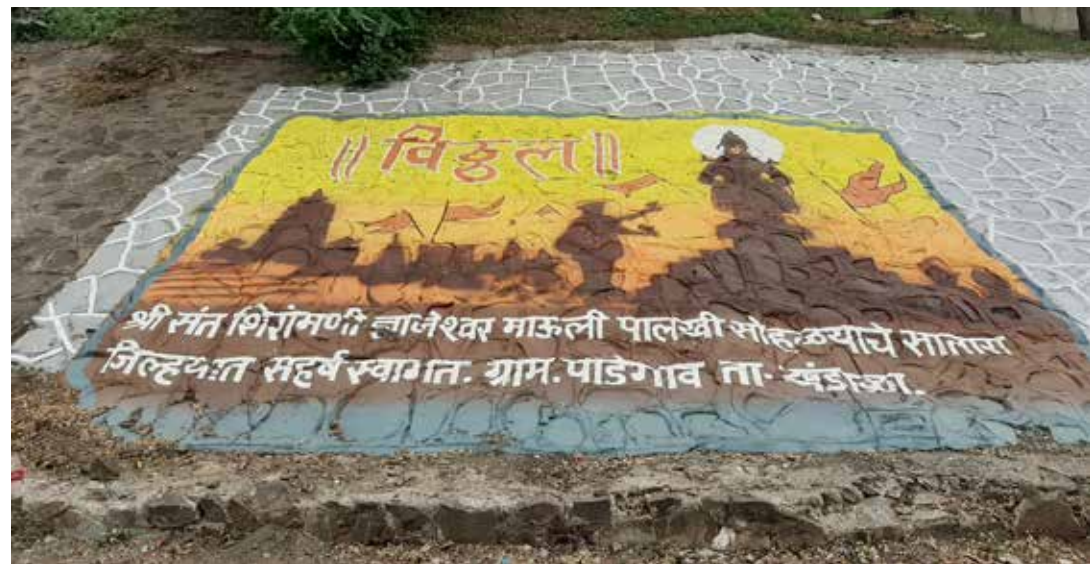 ॥ विठ्ठल ॥
श्री संत शिरोमणी ज्ञानेश्वर माऊली पालखी सोहळ्याचे सातारा
जिल्हयात सहर्ष स्वागत. ग्राम. पाडेगाव ता. खंडाळा.